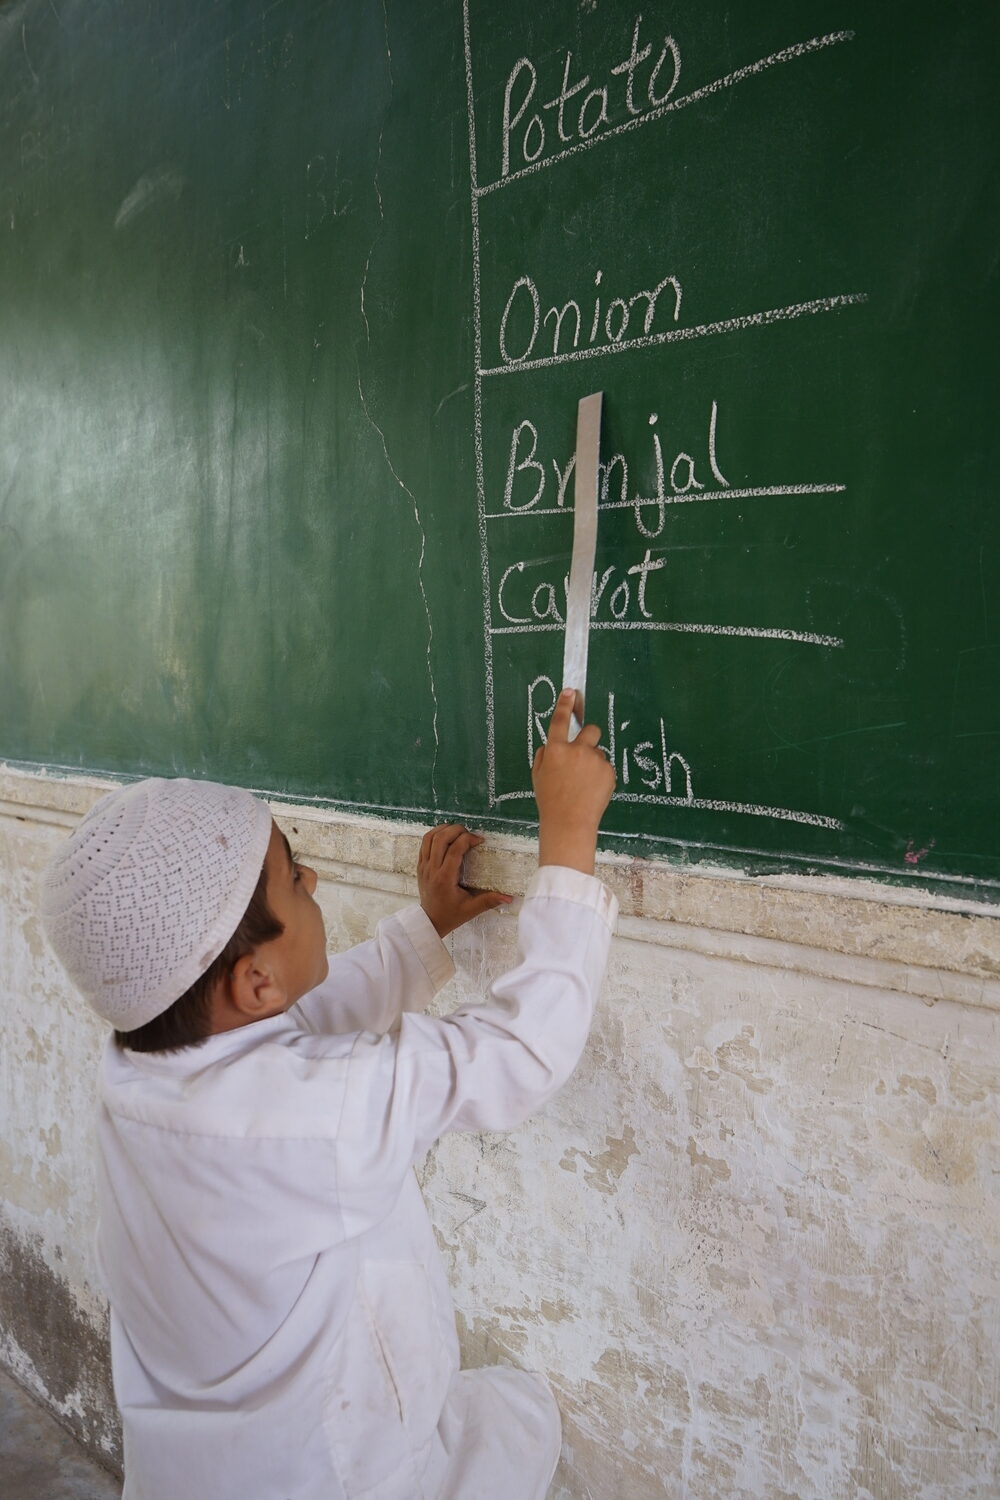 Potato
Onion
Brinjal
Carrot
Radish